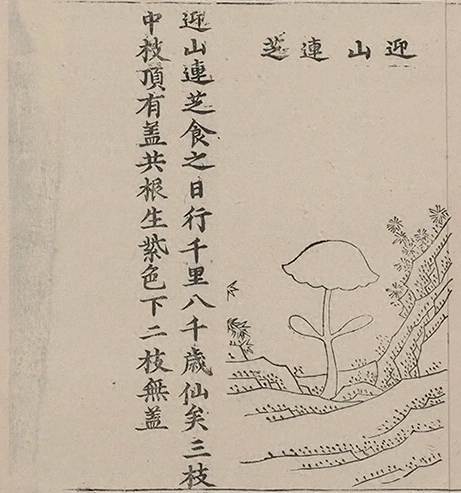 迎山連芝
迎山連芝食之日行千里八千歳仙矣三枝
中枝頂有盖共根生紫色下二枝無盖